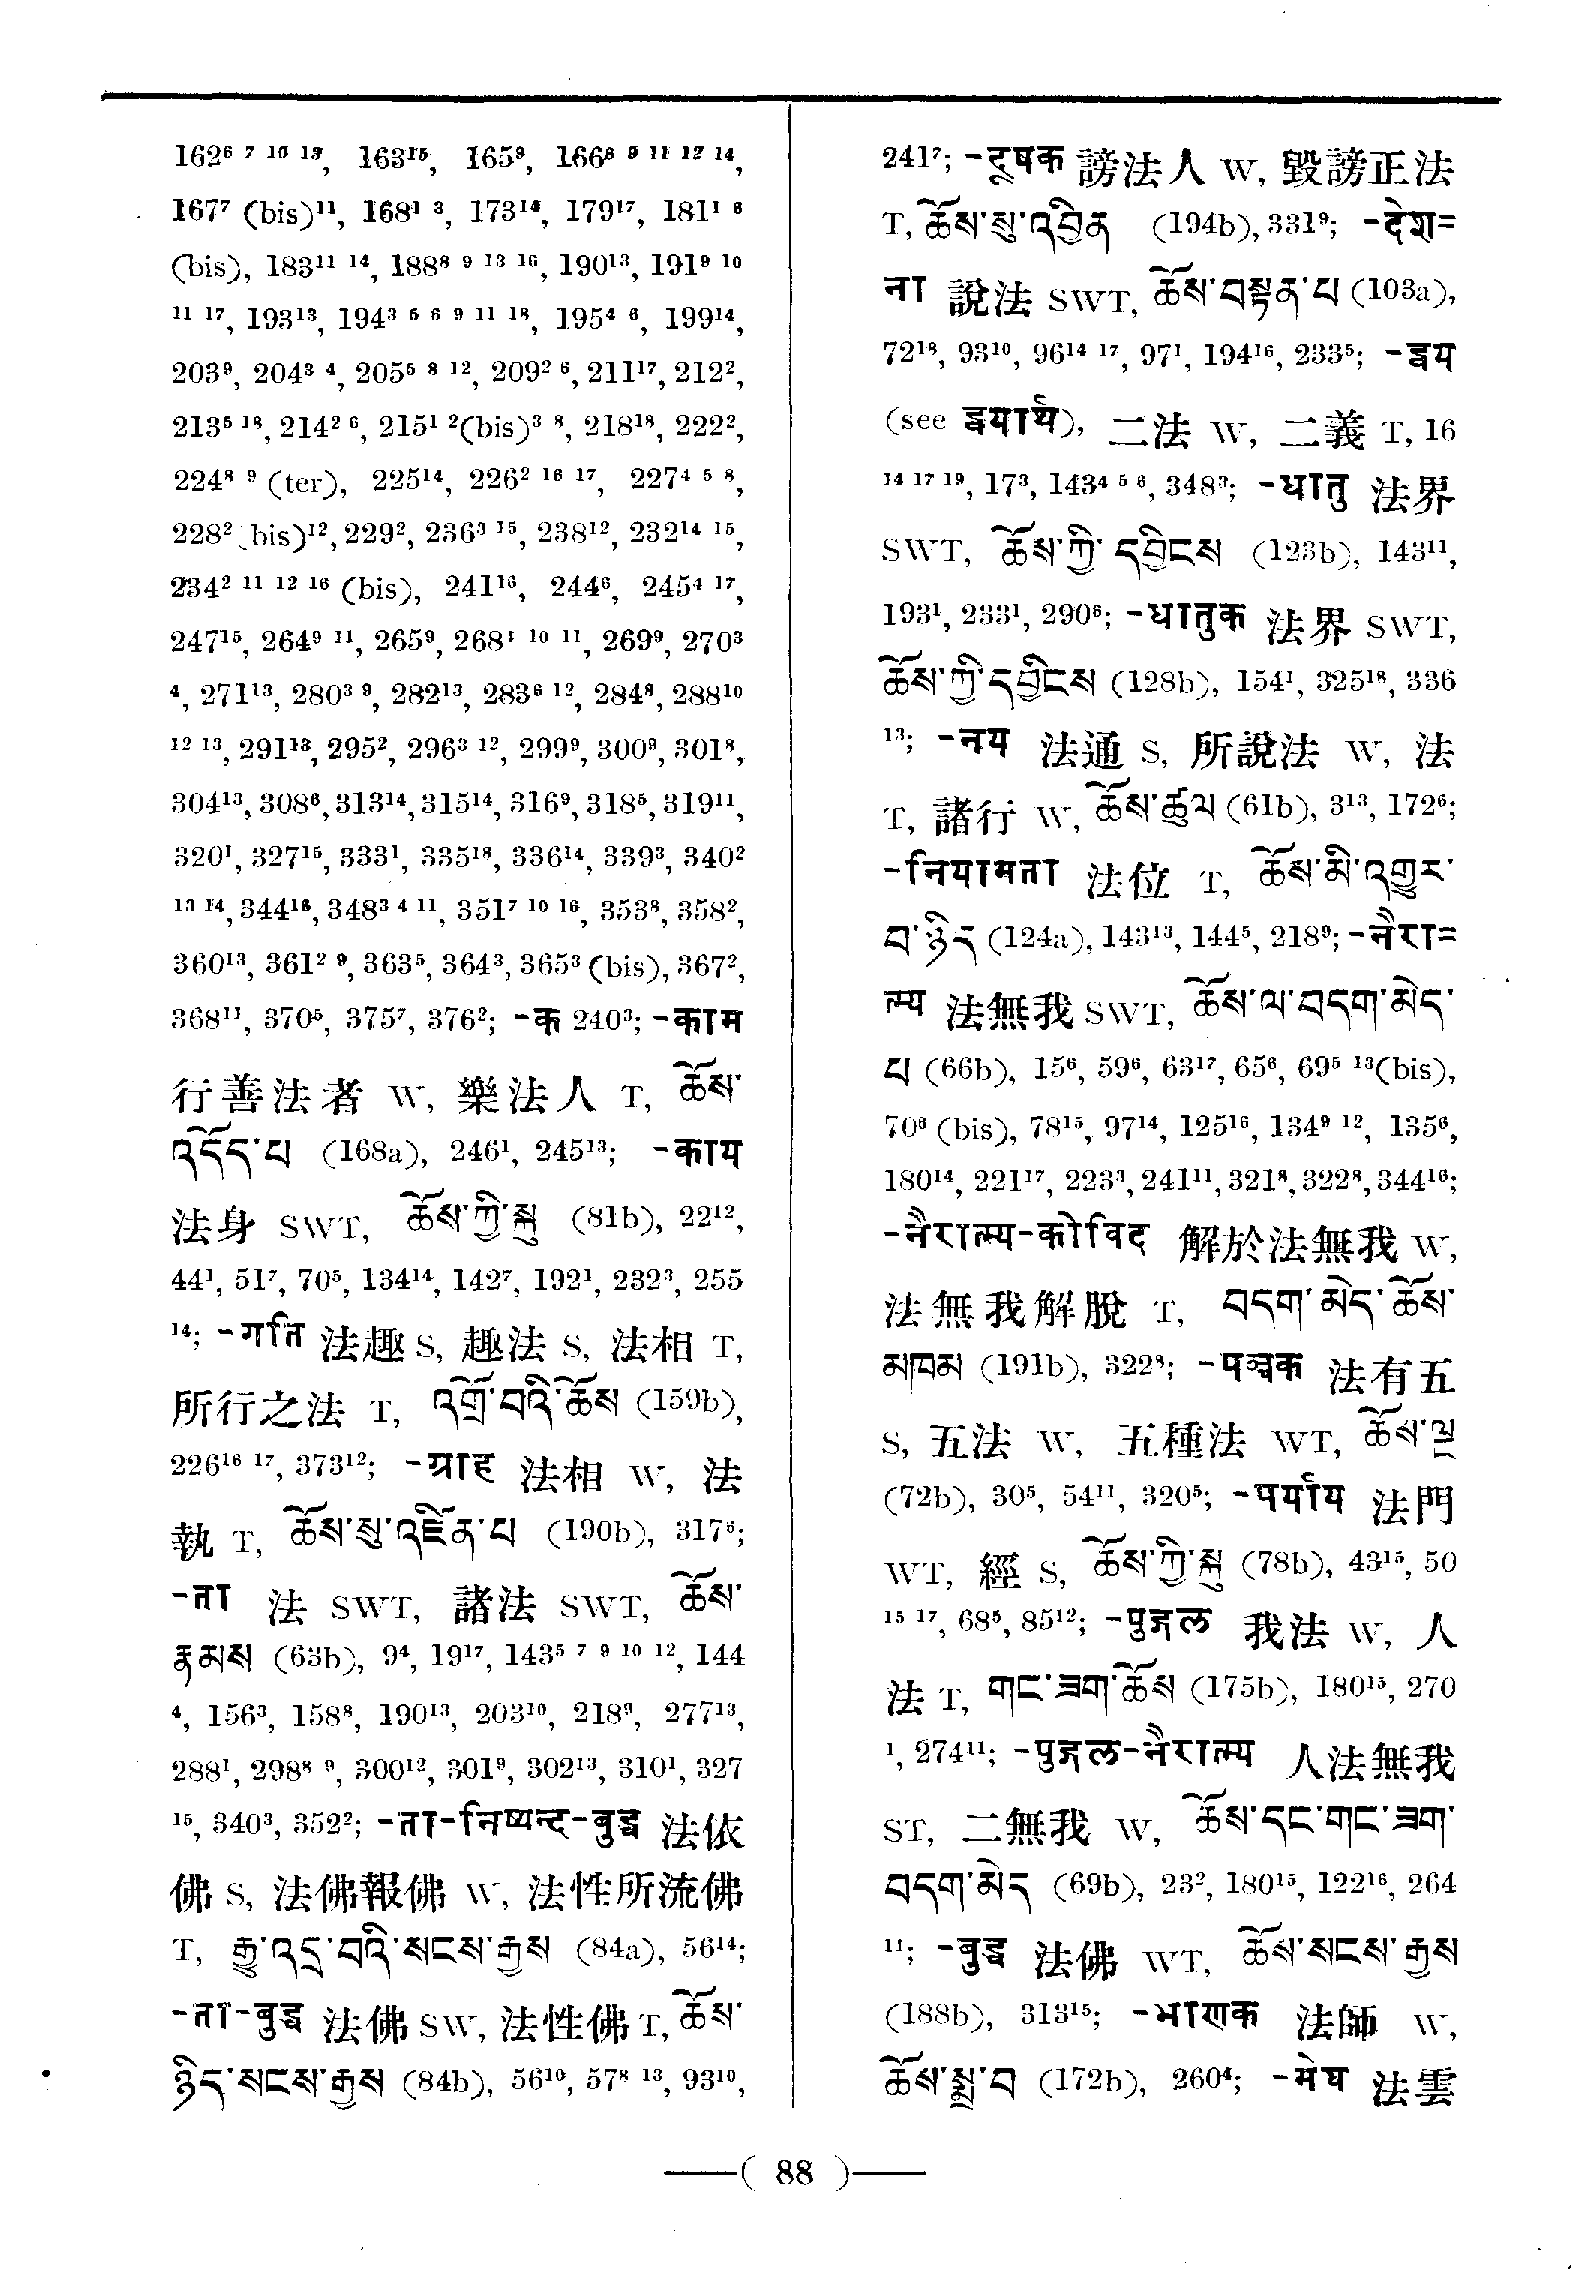 162⁶ ⁷ ¹⁰ ¹³, 163¹⁵, 165⁹, 166⁸ ⁹ ¹¹ ¹² ¹⁴,
167⁷ (bis)¹¹, 168¹ ³, 173¹⁴, 179¹⁷, 181¹ ⁶
(bis), 183¹¹ ¹⁴, 188⁸ ⁹ ¹³ ¹⁶, 190¹³, 191⁹ ¹⁰
¹¹ ¹⁷, 193¹³, 194³ ⁵ ⁶ ⁹ ¹¹ ¹⁸, 195⁴ ⁶, 199¹⁴,
203⁹, 204³ ⁴, 205⁵ ⁸ ¹², 209² ⁶, 211¹⁷, 212²,
213⁵ ¹⁸, 214² ⁶, 215¹ ²(bis)³ ⁸, 218¹⁸, 222²,
224⁸ ⁹ (ter), 225¹⁴, 226² ¹⁶ ¹⁷, 227⁴ ⁵ ⁸,
228² (bis)¹², 229², 236³ ¹⁵, 238¹², 232¹⁴ ¹⁵,
234² ¹¹ ¹² ¹⁶ (bis), 241¹⁶, 244⁶, 245⁴ ¹⁷,
247¹⁵, 264⁹ ¹¹, 265⁹, 268¹ ¹⁰ ¹¹, 269⁹, 270³
⁴, 271¹³, 280³ ⁹, 282¹³, 283⁶ ¹², 284⁸, 288¹⁰
¹² ¹³, 291¹³, 295², 296³ ¹², 299⁹, 300⁹, 301⁸,
304¹³, 308⁶, 313¹⁴, 315¹⁴, 316⁹, 318⁵, 319¹¹,
320¹, 327¹⁵, 333¹, 335¹⁸, 336¹⁴, 339³, 340²
¹³ ¹⁴, 344¹⁸, 348³ ⁴ ¹¹, 351⁷ ¹⁰ ¹⁶, 353⁸, 358²,
360¹³, 361² ⁹, 363⁵, 364³, 365³ (bis), 367²,
368¹¹, 370⁵, 375⁷, 376²; -क 240³; -काम
行善法者 W, 樂法人 T, ཆོས་
འདོད་པ (168a), 246¹, 245¹³; -काय
法身 SWT, ཆོས་ཀྱི་སྐུ (81b), 22¹²,
44¹, 51⁷, 70⁵, 134¹⁴, 142⁷, 192¹, 232³, 255
¹⁴; -गति 法趣 S, 趣法 S, 法相 T,
所行之法 T, འགྲོ་བའི་ཆོས (159b),
226¹⁶ ¹⁷, 373¹²; -ग्राह 法相 W, 法
執 T, ཆོས་སུ་འཛིན་པ (190b), 317⁵;
-ता 法 SWT, 諸法 SWT, ཆོས་
རྣམས (63b), 9⁴, 19¹⁷, 143⁵ ⁷ ⁹ ¹⁰ ¹², 144
⁴, 156³, 158⁸, 190¹³, 203¹⁰, 218⁹, 277¹³,
288¹, 298⁸ ⁹, 300¹², 301⁹, 302¹³, 310¹, 327
¹⁵, 340³, 352²; -ता-निष्यन्द-बुद्ध 法依
佛 S, 法佛報佛 W, 法性所流佛
T, རྒྱུ་འདྲ་བའི་སངས་རྒྱས (84a), 56¹⁴;
-ता-बुद्ध 法佛 SW, 法性佛 T, ཆོས་
ཉིད་སངས་རྒྱས (84b), 56¹⁰, 57⁸ ¹³, 93¹⁰,
241⁷; -दूषक 謗法人 W, 毀謗正法
T, ཆོས་སུ་འབྱིན (194b), 331⁹; -देश=
ना 說法 SWT, ཆོས་བསྟན་པ (103a),
72¹⁸, 93¹⁰, 96¹⁴ ¹⁷, 97¹, 194¹⁶, 233⁵; -द्वय
(see द्वयार्थ), 二法 W, 二義 T, 16
¹⁴ ¹⁷ ¹⁹, 17³, 143⁴ ⁵ ⁶, 348³; -धातु 法界
SWT, ཆོས་ཀྱི་དབྱིངས (123b), 143¹¹,
193¹, 233¹, 290⁶; -धातुक 法界 SWT,
ཆོས་ཀྱི་དབྱིངས (128b), 154¹, 325¹⁸, 336
¹³; -नय 法通 S, 所說法 W, 法
T, 諸行 W, ཆོས་ཚུལ (61b), 3¹³, 172⁶;
-नियामता 法位 T, ཆོས་མི་འགྱུར་
བ་ཉིད (124a), 143¹³, 144⁵, 218⁹; -नैरा=
त्म्य 法無我 SWT, ཆོས་ལ་བདག་མེད་
པ (66b), 15⁶, 59⁶, 63¹⁷, 65⁶, 69⁵ ¹³(bis),
70⁶ (bis), 78¹⁵, 97¹⁴, 125¹⁶, 134⁹ ¹², 135⁶,
180¹⁴, 221¹⁷, 223³, 241¹¹, 321⁸, 322⁸, 344¹⁶;
-नैरात्म्य-कोविद 解於法無我 W,
法無我解脫 T, བདག་མེད་ཆོས་
མཁས (191b), 322⁸; -पञ्चक 法有五
S, 五法 W, 五種法 WT, ཆོས་ལྔ
(72b), 30⁵, 54¹¹, 320⁵; -पर्याय 法門
WT, 經 S, ཆོས་ཀྱི་སྐུ (78b), 43¹⁵, 50
¹⁵ ¹⁷, 68⁵, 85¹²; -पुद्गल 我法 W, 人
法 T, གང་ཟག་ཆོས (175b), 180¹⁵, 270
¹, 274¹¹; -पुद्गल-नैरात्म्य 人法無我
ST, 二無我 W, ཆོས་དང་གང་ཟག་
བདག་མེད (69b), 23², 180¹⁵, 122¹⁶, 264
¹¹; -बुद्ध 法佛 WT, ཆོས་སངས་རྒྱས
(188b), 313¹⁵; -भाणक 法師 W,
ཆོས་སྨྲ་བ (172b), 260⁴; -मेघ 法雲
—( 88 )—